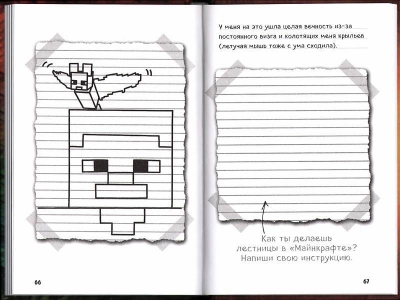 У меня на это ушла целая вечность из-за
постоянного визга и колотящих меня крыльев
(летучая мышь тоже с ума сходила).
Как ты делаешь
лестницы в «Майнкрафте»?
Напиши свою инструкцию.
66
67